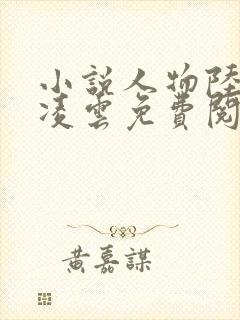 小說人物陸
凌雲免費閱
黃嘉謀